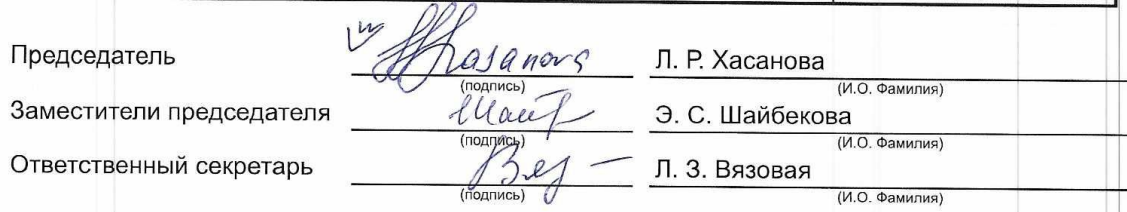 Председатель Hasanova Л. Р. Хасанова
(подпись) (И.О. Фамилия)
Заместители председателя Шайб Э. С. Шайбекова
(подпись) (И.О. Фамилия)
Ответственный секретарь Вяз Л. З. Вязовая
(подпись) (И.О. Фамилия)